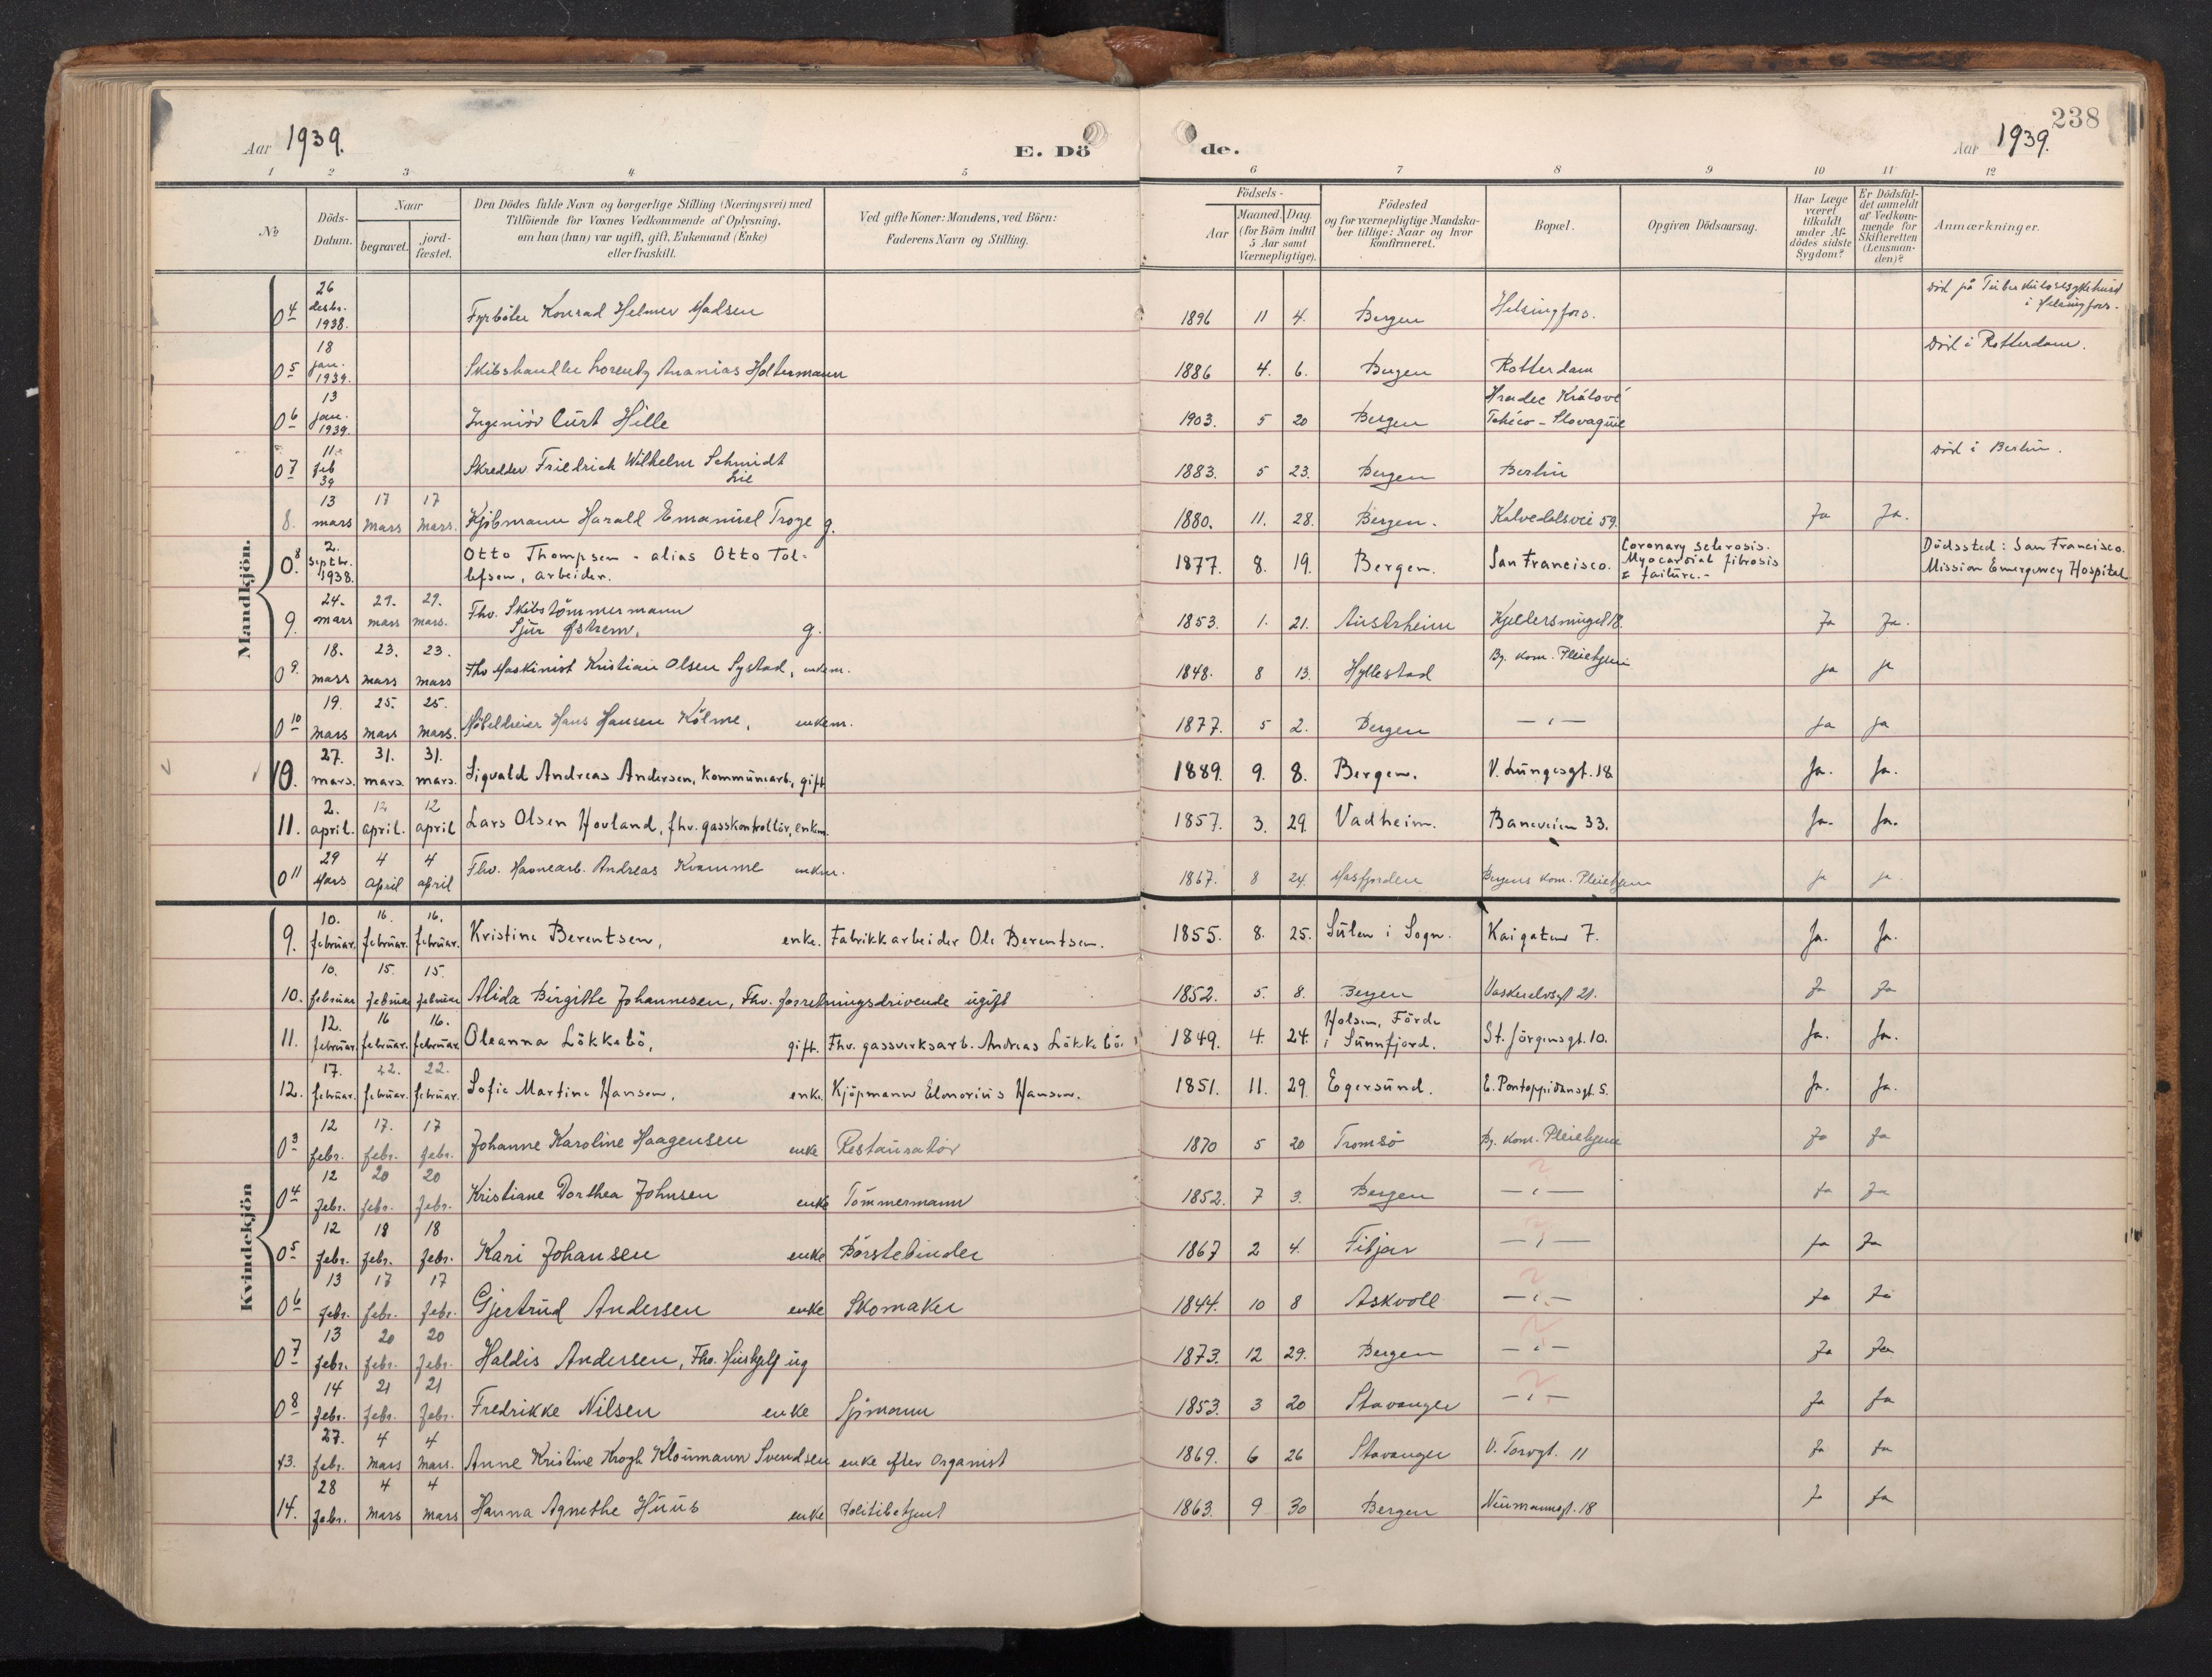 238
Aar 1939.
E. Dö
de.
Aar 1939.
1 2 3 4 5 6 7 8 9 10 11 12
No
Döds-
Datum.
Naar
begravet.
jord-
fæstet.
Den Dödes fulde Navn og borgerlige Stilling (Næringsvei) med
Tilföiende for Voxnes Vedkommende af Oplysning,
om han (hun) var ugift, gift, Enkemand (Enke)
eller fraskilt.
Ved gifte Koner: Mandens, ved Börn:
Faderens Navn og Stilling.
Födsels-
Aar
Maaned. Dag.
(for Börn indtil
5 Aar samt
Værnepligtige).
Födested
og for værnepligtige Mandska-
ber tillige: Naar og hvor
konfirmeret.
Bopæl.
Opgiven Dödsaarsag.
Har Læge
været
tilkaldt
under Af-
dödes sidste
Sygdom?
Er Dödsfal-
det anmeldt
af Vedkom-
mende for
Skifteretten
(Lensman-
den)?
Anmærkninger.
Mandkjön.
04 26 desbr. 1938. Fyrböter Konrad Helmer Madsen 1896 11 4. Bergen Helsingfors. död på Tuberkulosesykehuset i Helsingfors.
05 18 jan. 1939. Skibshandler Lorentz Ananias Holtermann 1886 4. 6. Bergen Rotterdam död i Rotterdam.
06 13 jan. 1939. Ingeniör Curt Hille 1903. 5 20 Bergen Hradec Králové Tchéco-Slovaquie
07 11. feb 39 Skredder Friedrich Wilhelm Schmidt Lie 1883. 5 23. Bergen Berlin död i Berlin.
8. 13 mars 17 mars 17 mars. Kjöbmann Harald Emanuel Troye g. 1880. 11. 28. Bergen. Kalvedalsvei 59. Ja Ja.
08. 2. septbr. 1938. Otto Thompsen - alias Otto Tol-
lefsen, arbeider. 1877. 8. 19. Bergen. San Francisco. Coronary sclerosis. Myocardial fibrosis & failure.- Dödssted: San Francisco. Mission Emergency Hospital
9. 24. mars 29. mars 29. mars. Fhv. Skibstömmermann
Sjur Østrem, g. 1853. 1. 21. Austrheim Kjellersmuget 18. Ja Ja.
09. 18. mars 23. mars 23. mars Fhv Maskinist Kristian Olsen Systad, enkem. 1848. 8 13. Hyllestad By. Kom. Pleiehjem ja ja
010 19. mars 25. mars 25. mars. Möbeldreier Hans Hansen Kölme, enkem. 1877. 5 2. Bergen — " — Ja Ja
10. 27. mars. 31. mars. 31. mars. Sigvald Andreas Andersen, kommunearb., gift 1889. 9. 8. Bergen. V. Lungegt. 18 Ja. Ja.
11. 2. april. 12 april. 12 april Lars Olsen Hovland, fhv. gasskontrollör, enkem. 1857. 3. 29. Vadheim. Baneveien 33. Ja. Ja.
011 29 Mars 4 april 4 april Fhv. Havnearb. Andreas Kvamme enkm. 1867. 8 24. Masfjorden Bergens Kom. Pleiehjem ja ja.
Kvindekjön
9. 10. februar. 16. februar. 16. februar. Kristine Berentsen, enke. Fabrikkarbeider Ole Berentsen. 1855. 8. 25. Sulen i Sogn. Kaigaten 7. Ja. Ja.
10. 10. februar 15. februar 15. februar Alida Birgitte Johannesen, Fhv. forretningsdrivende ugift 1852. 5. 8. Bergen Vaskerelvsgt 21. Ja Ja
11. 12. februar. 16 februar. 16. februar. Oleanna Lökkebö, gift. Fhv. gassverksarb. Andreas Lökkebö. 1849. 4. 24. Holsen, Förde
i Sunnfjord. St. Jörgensgt. 10. Ja. Ja.
12. 17. februar. 22. februar. 22. februar. Sofie Martine Hansen, enke. Kjöpmann Elenorius Hansen. 1851. 11. 29. Egersund. E. Pontoppidansgt. 5. Ja. Ja.
03 12 febr. 17. febr. 17 febr. Johanne Karoline Haagensen enke Restauratör 1870 5 20 Tromsö By. Kom. Pleiehjem Ja Ja
04 12 febr. 20 febr. 20 febr. Kristiane Dorthea Johnsen enke Tömmermann 1852. 7 3. Bergen — " — Ja Ja
05 12 febr. 18 febr. 18 febr. Kari Johansen enke Börstebinder 1867 2 4. Fitjar — " — Ja Ja
06 13 febr. 17 febr. 17 febr. Gjertrud Andersen enke Skomaker 1844. 10 8 Askvoll — " — Ja Ja
07 13 febr. 20 febr. 20 febr. Haldis Andersen, Fhv. Hushjelp ug 1873. 12 29. Bergen — " — Ja Ja
08 14 febr. 21 febr. 21 febr. Fredrikke Nilsen enke Sjömann 1853. 3 20 Stavanger — " — Ja Ja
13. 27. febr. 4 mars 4 mars. Anne Kristine Krogh Kloumann Svendsen enke efter Organist 1869. 6 26 Stavanger V. Torvgt. 11 Ja Ja
14. 28 febr. 4 mars 4 mars Hanna Agnethe Huus enke Politibetjent 1863. 9 30 Bergen Neumannsgt. 18 Ja Ja